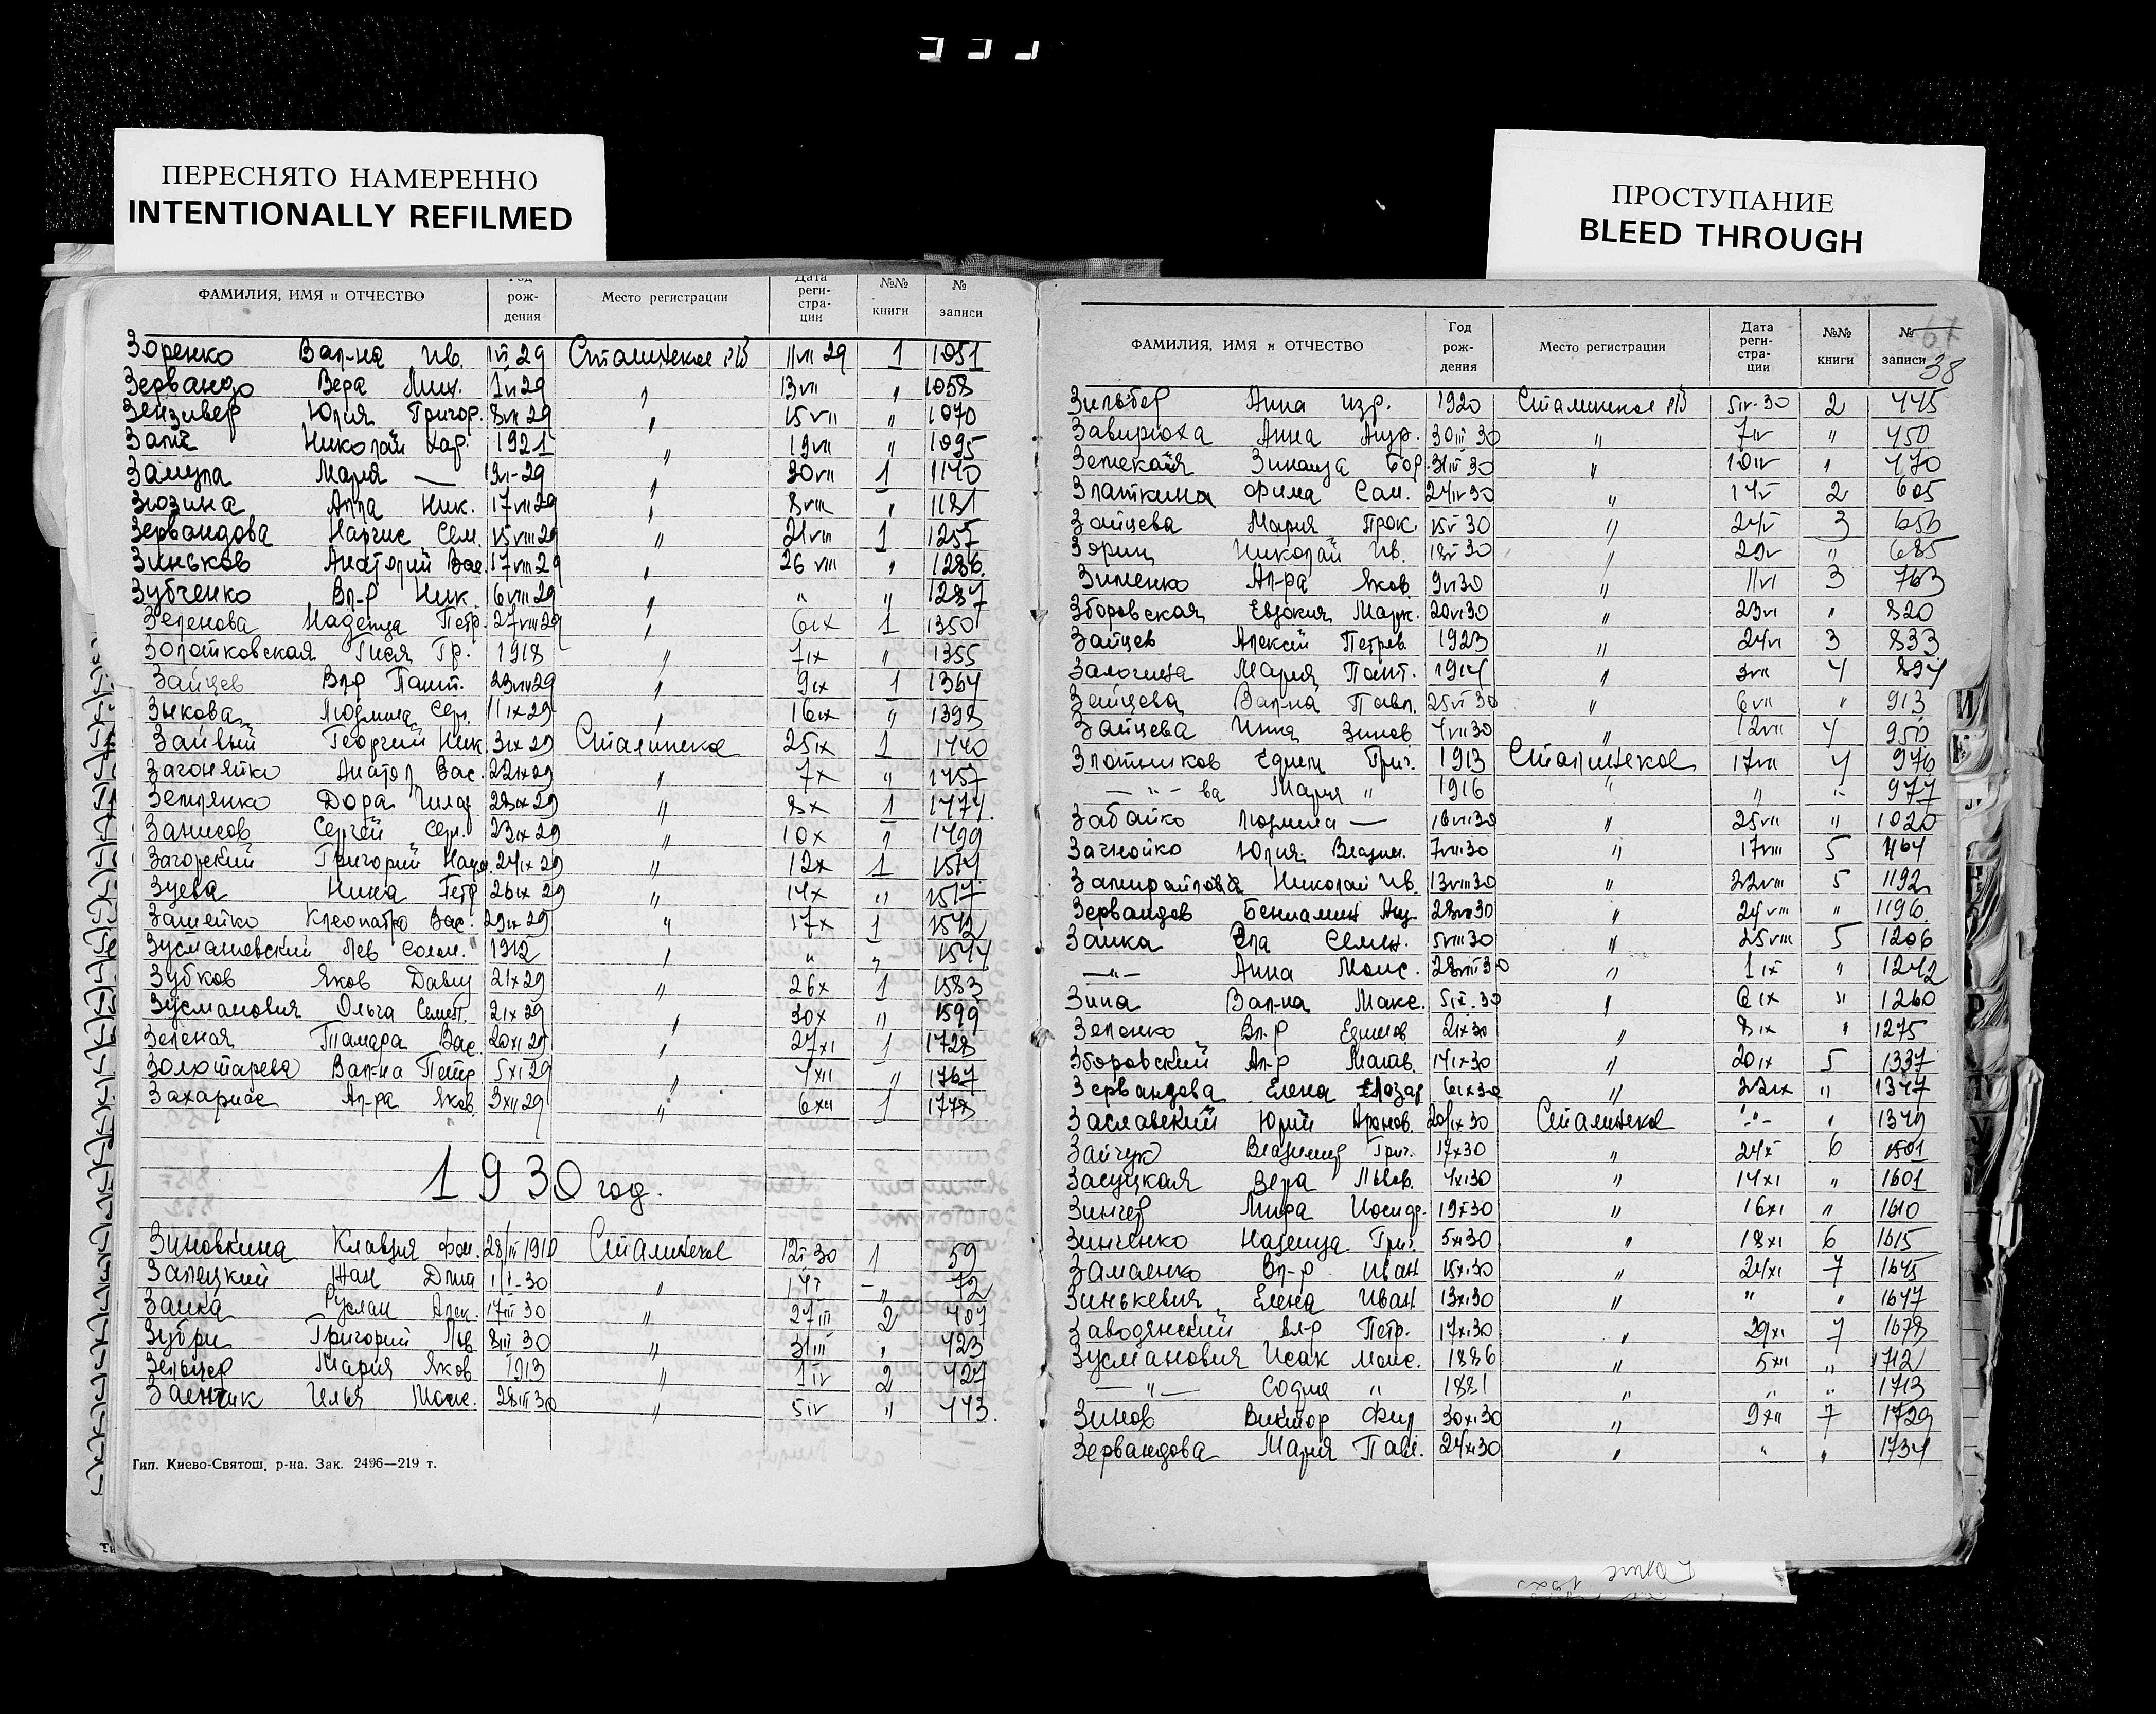 ПЕРЕСНЯТО НАМЕРЕННО
INTENTIONALLY REFILMED
ПРОСТУПАНИЕ
BLEED THROUGH
ФАМИЛИЯ, ИМЯ и ОТЧЕСТВО Год рож-дения Место регистрации Дата реги-стра-ции №№ книги № записи
Зоренко Вал-на Ив. 1VI 29 Сталинское 11VII 29 1 1051
Зервандо Вера Мих. 1VI 29 " 13VII " 1058
Юлия Григор. 8VII 29 " 15VII " 1070
Николай 1921 " 19VII " 1095
Мария — 29 " 30VII 1 1140
Зюзина Алла Ник. 17VII 29 " 8VIII " 1181
Зервандова Наргис Сем. 15VIII 29 " 21VIII 1 1257
Зиньков Анатолий Вас. 17VIII 29 " 26VIII " 1286
Зубченко Вл-р Ник. 16VIII 29 " " " 1287
Зеленова Надежда Петр. 27VIII 29 " 6IX 1 1350
Золотковская Гися Гр. 1918 " 7IX " 1355
Зайцев Вл-р Пант. 29 " 9IX 1 1364
Зыкова Людмила Серг. 11IX 29 " 16IX " 1398
Георгий Ник. 3IX 29 Сталинское 25IX 1 1440
Загоняйко Анатол Вас. 22IX 29 " 7X " 1457
Землянко Дора 28IX 29 " 8X 1 1474
Сергей Серг. 23IX 29 " 10X " 1499
Загорский Григорий 24IX 29 " 12X 1 1514
Зуева Нина Петр 26IX 29 " 14X " 1517
Клеопатра Вас. 29IX 29 " 17X 1 1542
Зусмановский Лев Солом. 1912 " " " 1544
Зубков Яков Давид 21X 29 " 26X 1 1583
Зусманович Ольга Семен. 21X 29 " 30X " 1599
Зеленая Тамара Вас. 20XI 29 " 27XI 1 1728
Золотарева Вал-на Петр 5XI 29 " 4XII " 1767
Ал-ра Яков. 3XII 29 " 6XII 1 1778
1930 год.
Зиновкина Клавдия Фом. 28/III 1910 Сталинское 12I-30 1 59
Залецкий Жан 1/I-30 " " 72
Заика Руслан Алек. 17III 30 " 27III 2 407
Григорий Льв. 8III 30 " 31III " 423
Зельцер Мария Яков. 1913 " 1IV 2 427
Заенчик Илья Моис. 28III 30 " 5IV " 443.
Тип. Киево-Святош. р-на. Зак. 2496—219 т.
67
38
ФАМИЛИЯ, ИМЯ и ОТЧЕСТВО Год рож-дения Место регистрации Дата реги-стра-ции №№ книги № записи
Зильбер Анна Изр. 1920 Сталинское 5IV-30 2 445
Завирюха Анна Андр. 30III 30 " 7IV " 450
Земская Зинаида Бор. 31III 30 " 10IV " 470
Златкина Фима Сам. 24IV 30 " 14V 2 605
Зайцева Мария Прок. 15V 30 " 24V 3 656
Зорин Николай Ив. 18V 30 " 29V " 685
Зименко Ал-ра Яков. 9VI 30 " 11VI 3 763
Зборовская Евдокия Марк. 20VI 30 " 23VI " 820
Зайцев Алексей Петров. 1923 " 24VI 3 833
Мария Пант. 1914 " 3VII 4 894
Зайцева Вал-на Павл. 25VI 30 " 6VII " 913
Зайцева Инна Зинов 4VII 30 " 12VII 4 950
Злотников Ефим Григ. 1913 Сталинское 17VII 4 976
— " — ва Мария " 1916 " " " 977
Забайко Людмила — 16VI 30 " 25VII " 1020
Юлия Владим. 7VIII 30 " 17VIII 5 1164
Николай Ив. 13VIII 30 " 22VIII 5 1192
Зервандов Бениамин Анд. 28VII 30 " 24VIII " 1196
Заика Ела Семен. 5VIII 30 " 25VIII 5 1206
— " — Анна Моис. 28VIII 30 " 1IX " 1242
Зина Вал-на Макс. 5IX-30 " 6IX " 1260
Зеленко Вл-р Ефимов 2IX 30 " 8IX " 1275
Зборовский Ал-р Матв. 14IX 30 " 20IX 5 1337
Зервандова Елена Елазар 6IX 30 " 22IX " 1347
Заславский Юрий Аронов. 20/IX 30 Сталинское - " - " 1349
Зайчук Владимир Григ. 17X 30 " 24X 6 1501
Засуцкая Вера Львов. 4XI 30 " 14XI " 1601
Зингер Мира Иосиф. 19X 30 " 16XI " 1610
Зинченко Надежда Григ. 5XI 30 " 18XI 6 1615
Вл-р Иван 15XI 30 " 24XI 7 1645
Зинькевич Елена Иван 13XI 30 " " " 1647
Заводянский Вл-р Петр. 17XI 30 " 29XI 7 1678
Зусманович Исак Моис. 1886 " 5XII " 1712
— " — София " 1881 " " " 1713
Зинов Виктор Фил 30XI 30 " 9XII 7 1729
Зервандова Мария Павл. 24XI 30 " " " 1734